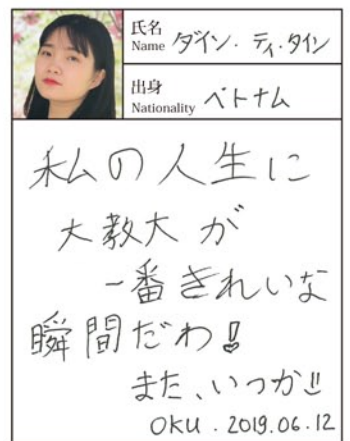 氏名
Name ダイン・ティ・タイン
出身
Nationality ベトナム
私の人生に
大教大が
一番きれいな
瞬間だわ!
また、いつか!!
OKU . 2019.06.12